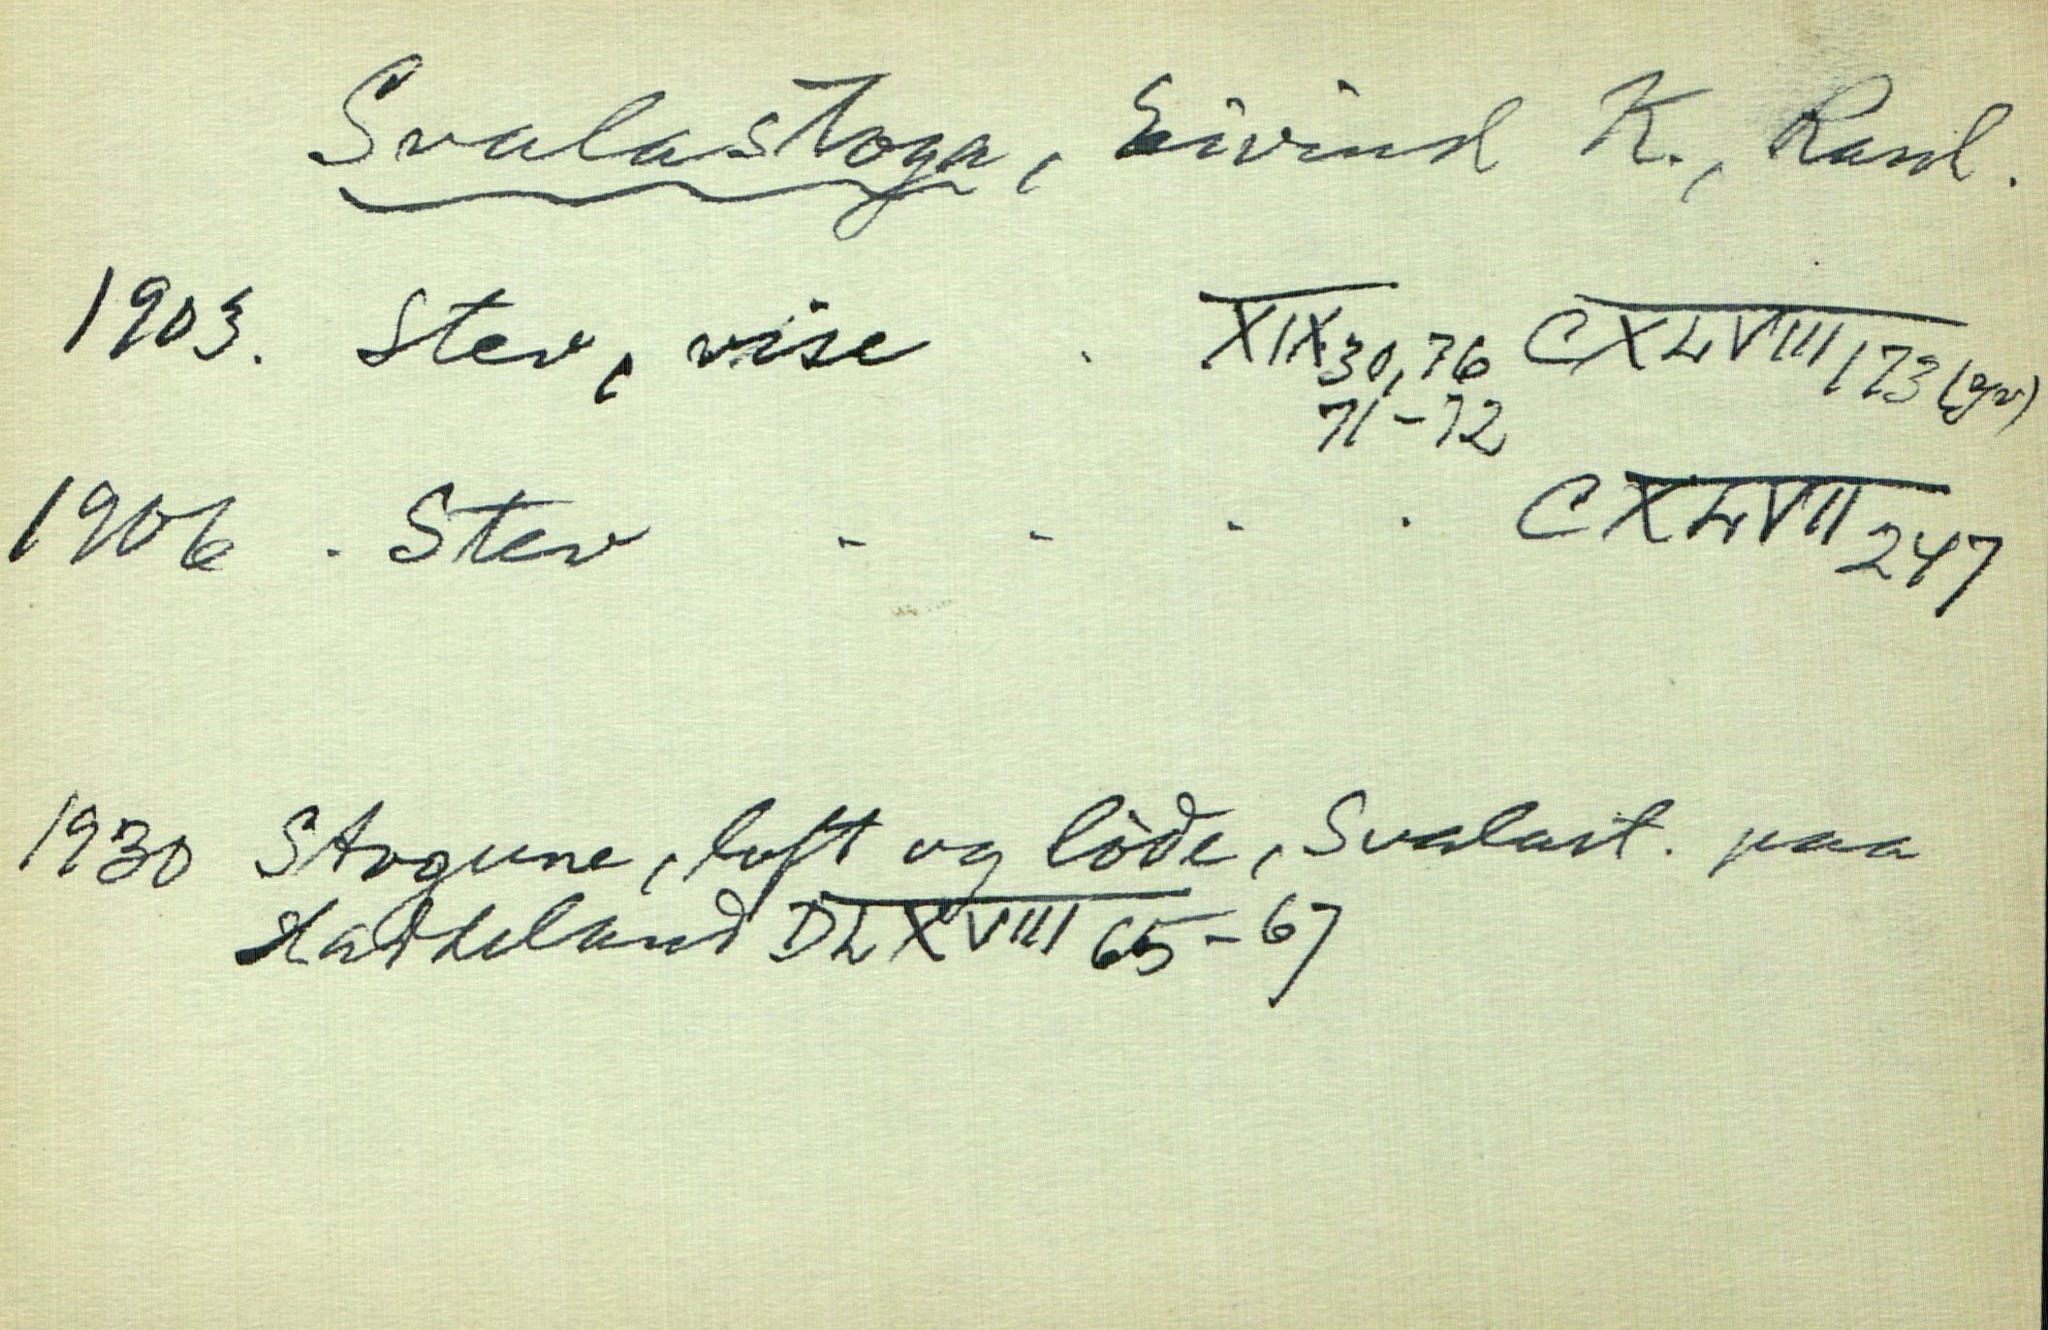 Svalastoga, Eivind K., Raul.
1903. Stev, vise . XIX 30, 76 CXLVIII 173 (gv)
71-72
1906. Stev - - - . CXLVII 247
1930 Stogune, loft og löde, Svalast. paa
Haddeland DLXVIII 65-67